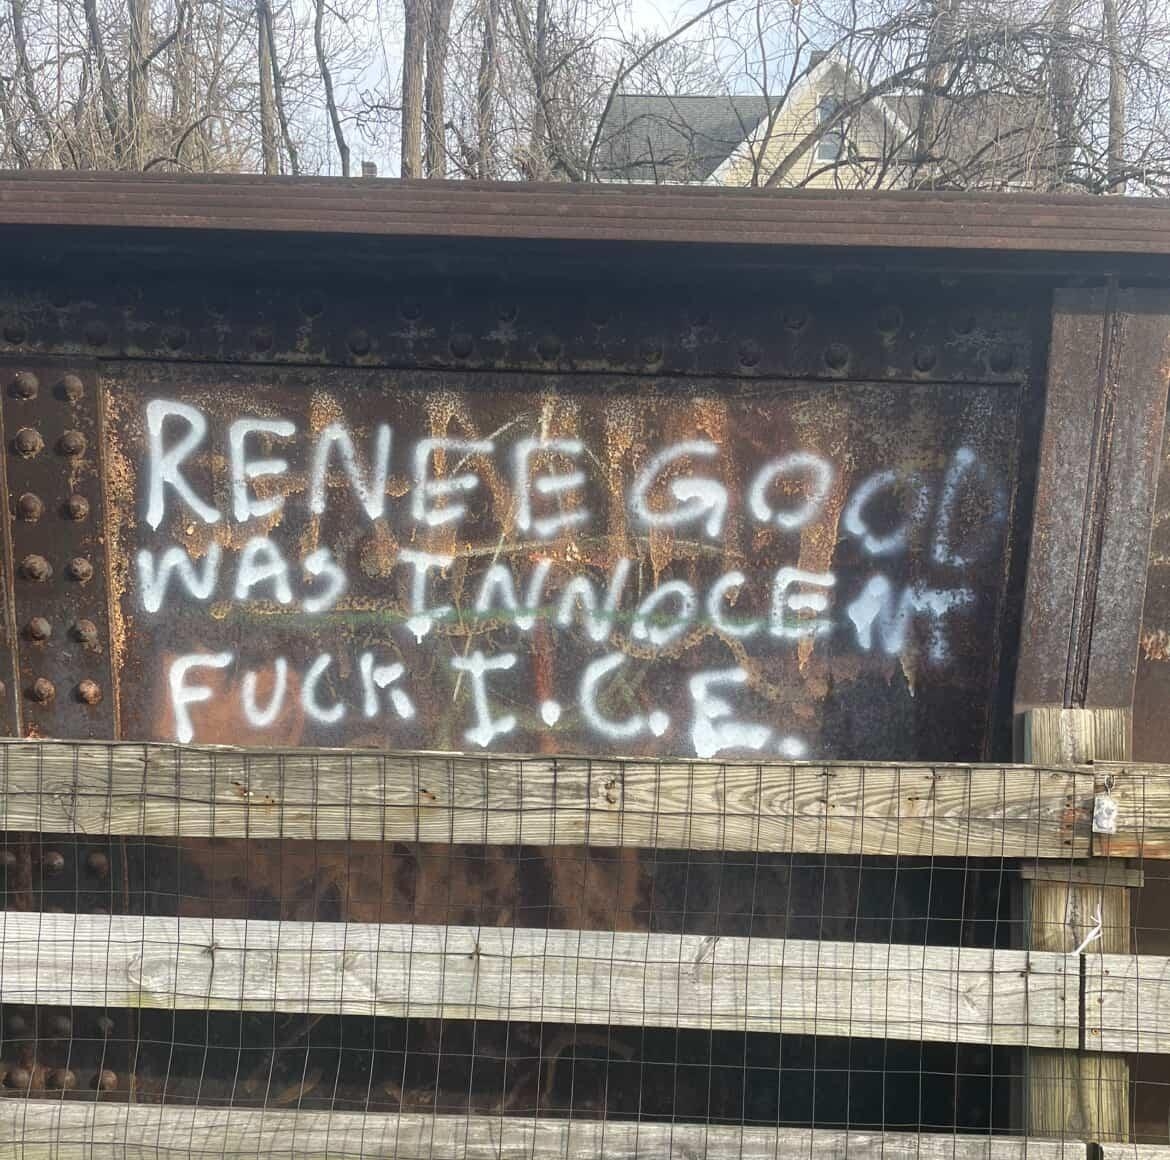 RENEE GOOD
WAS INNOCENT
FUCK I.C.E.